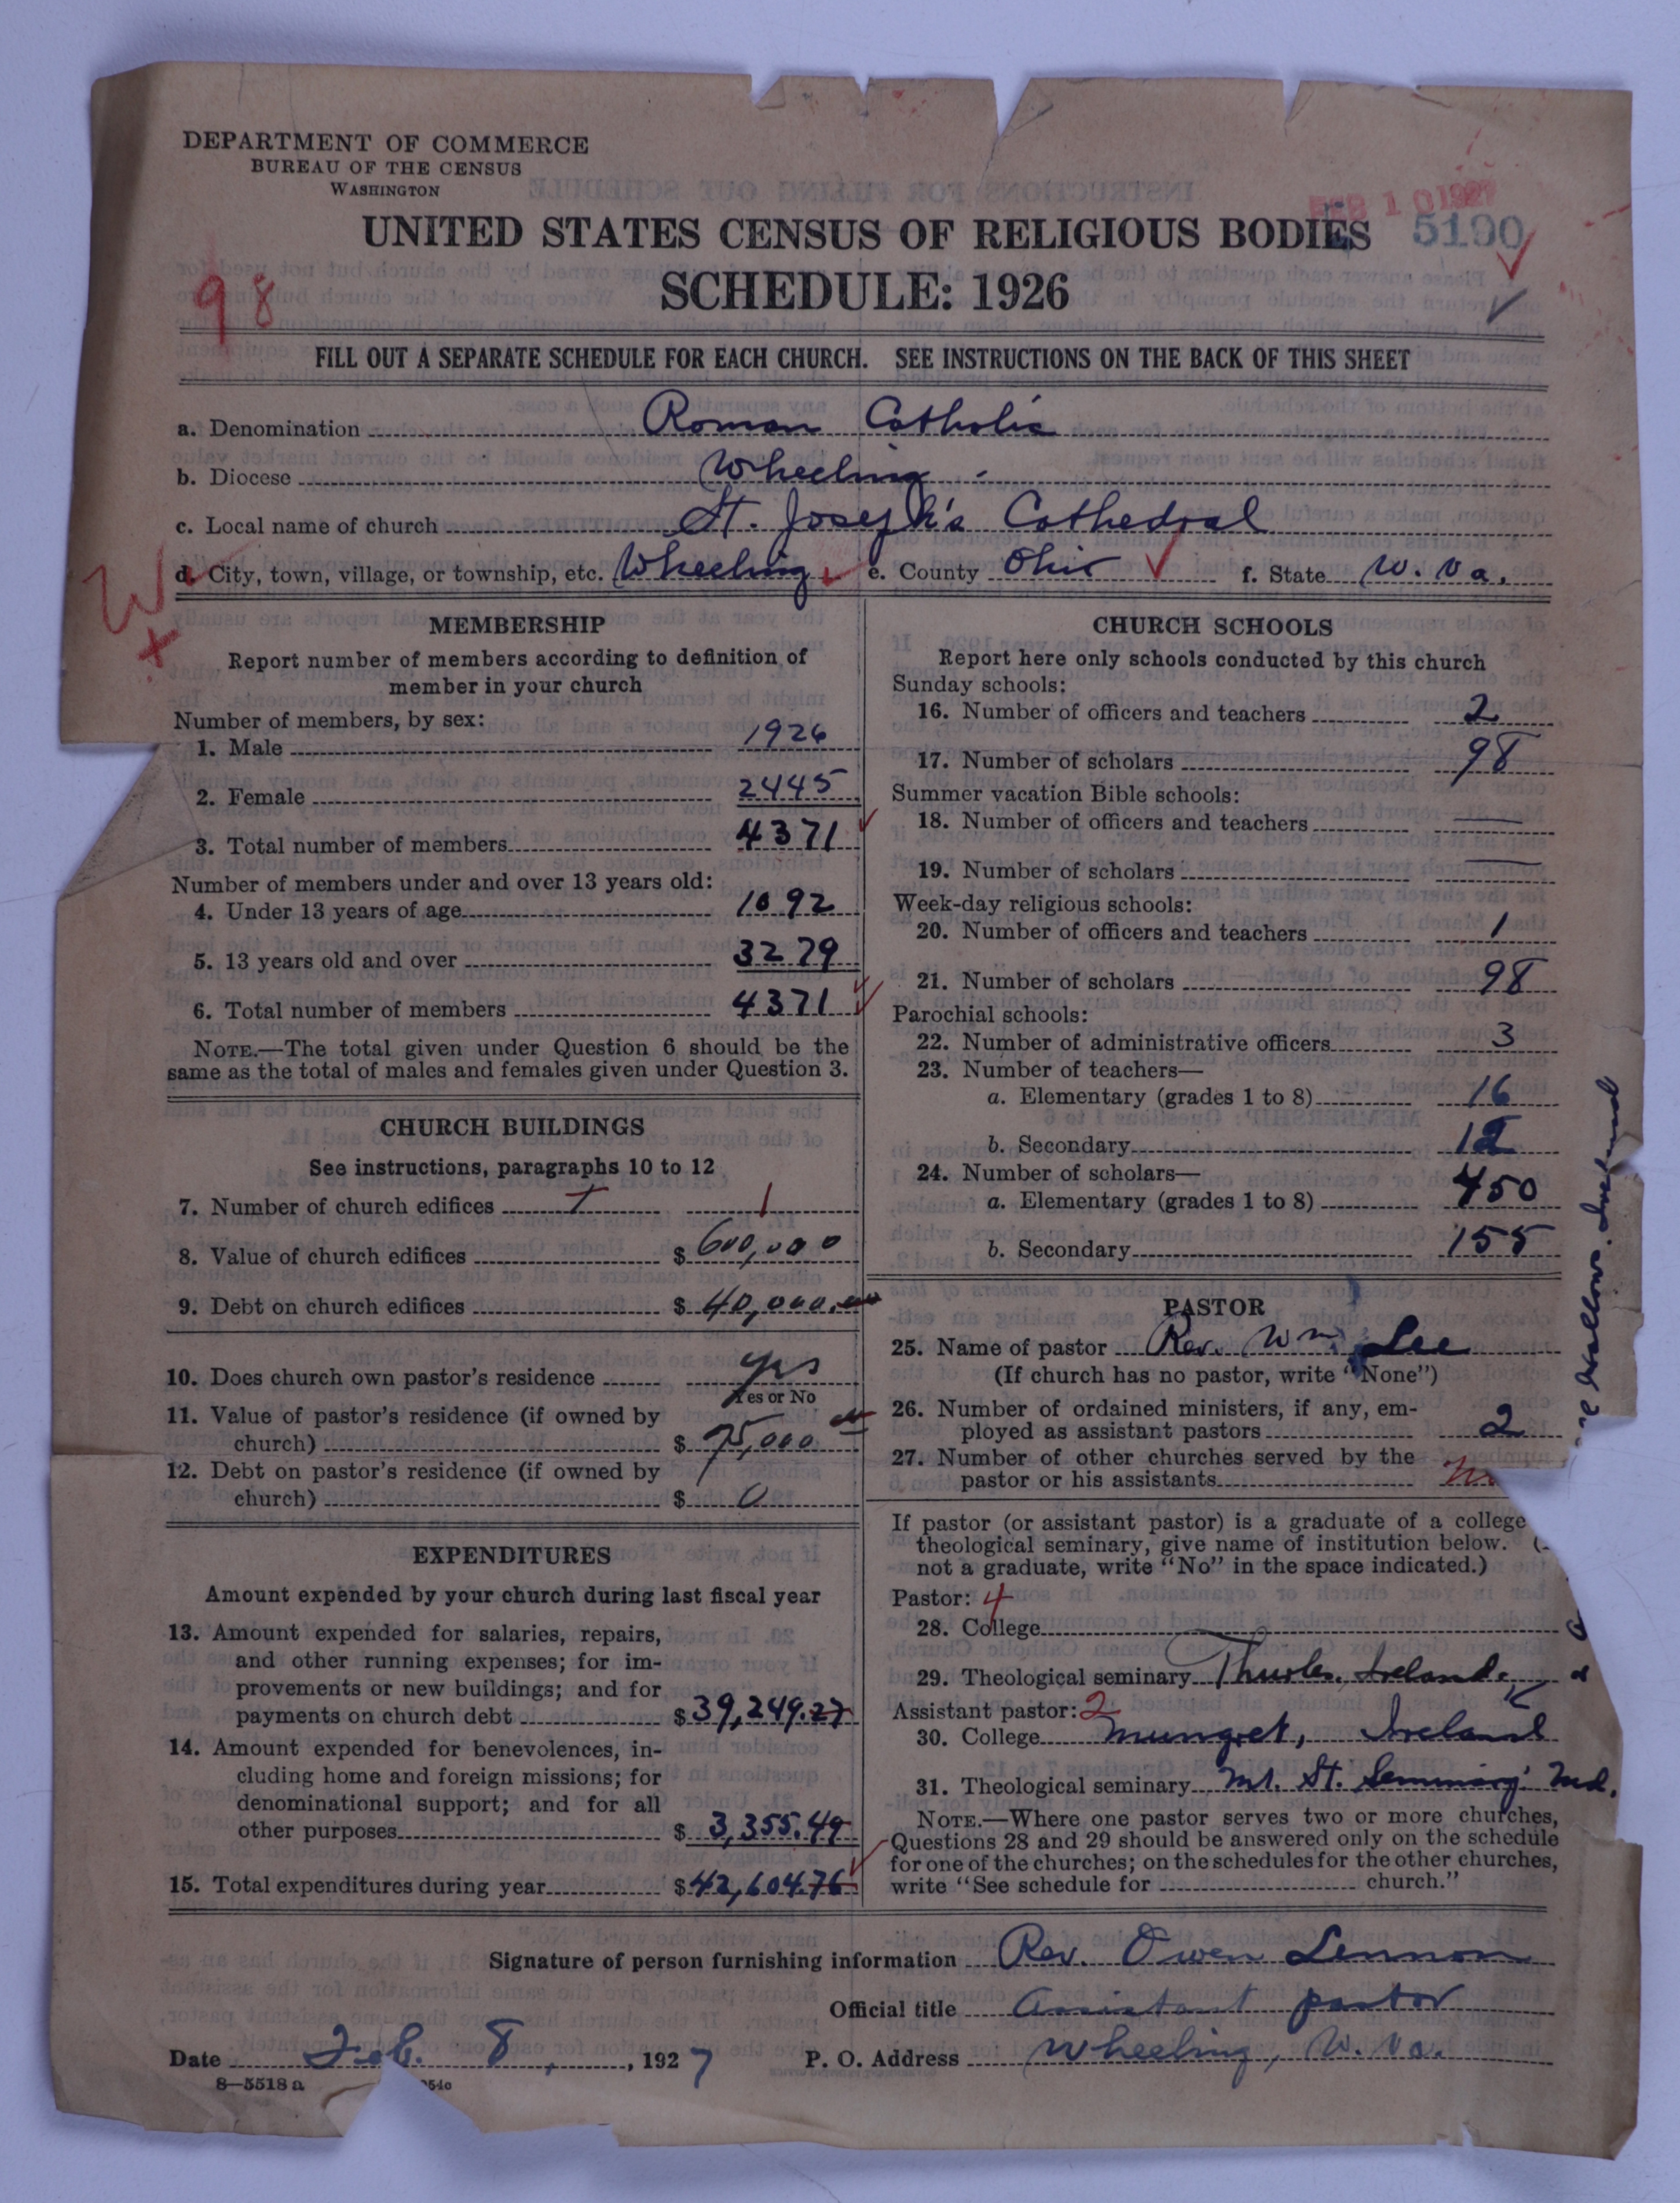 DEPARTMENT OF COMMERCE
BUREAU OF THE CENSUS
WASHINGTON
FEB 10 1927
UNITED STATES CENSUS OF RELIGIOUS BODIES 5190
98
SCHEDULE: 1926
FILL OUT A SEPARATE SCHEDULE FOR EACH CHURCH. SEE INSTRUCTIONS ON THE BACK OF THIS SHEET
a. Denomination Roman Catholic
b. Diocese Wheeling
c. Local name of church St. Joseph's Cathedral
d. City, town, village, or township, etc. Wheeling e. County Ohio f. State W. Va.
W
MEMBERSHIP
Report number of members according to definition of
member in your church
Number of members, by sex:
1. Male 1926
2. Female 2445
3. Total number of members 4371
Number of members under and over 13 years old:
4. Under 13 years of age 1092
5. 13 years old and over 3279
6. Total number of members 4371
NOTE.—The total given under Question 6 should be the
same as the total of males and females given under Question 3.
CHURCH BUILDINGS
See instructions, paragraphs 10 to 12
7. Number of church edifices 1
8. Value of church edifices $ 600,000
9. Debt on church edifices $ 40,000.00
10. Does church own pastor's residence yes
Yes or No
11. Value of pastor's residence (if owned by
church) $ 75,000
12. Debt on pastor's residence (if owned by
church) $ 0
EXPENDITURES
Amount expended by your church during last fiscal year
13. Amount expended for salaries, repairs,
and other running expenses; for im-
provements or new buildings; and for
payments on church debt $ 39,249.27
14. Amount expended for benevolences, in-
cluding home and foreign missions; for
denominational support; and for all
other purposes $ 3,355.49
15. Total expenditures during year $ 42,604.76
CHURCH SCHOOLS
Report here only schools conducted by this church
Sunday schools:
16. Number of officers and teachers 2
17. Number of scholars 98
Summer vacation Bible schools:
18. Number of officers and teachers —
19. Number of scholars —
Week-day religious schools:
20. Number of officers and teachers 1
21. Number of scholars 98
Parochial schools:
22. Number of administrative officers 3
23. Number of teachers—
a. Elementary (grades 1 to 8) 16
b. Secondary 12
24. Number of scholars—
a. Elementary (grades 1 to 8) 450
b. Secondary 155
PASTOR
25. Name of pastor Rev. Wm. Lee
(If church has no pastor, write "None")
26. Number of ordained ministers, if any, em-
ployed as assistant pastors 2
27. Number of other churches served by the
pastor or his assistants
If pastor (or assistant pastor) is a graduate of a college
theological seminary, give name of institution below. (
not a graduate, write "No" in the space indicated.)
Pastor: 4
28. College
29. Theological seminary Thurles, Ireland.
Assistant pastor: 2
30. College Mungret, Ireland
31. Theological seminary Mt. St. Seminary Md.
NOTE.—Where one pastor serves two or more churches,
Questions 28 and 29 should be answered only on the schedule
for one of the churches; on the schedules for the other churches,
write "See schedule for church."
Hallows. Ireland
Signature of person furnishing information Rev. Owen Lennon
Official title Assistant pastor
Date Feb. 8, 1927 P. O. Address Wheeling, W. Va.
8—5518 a